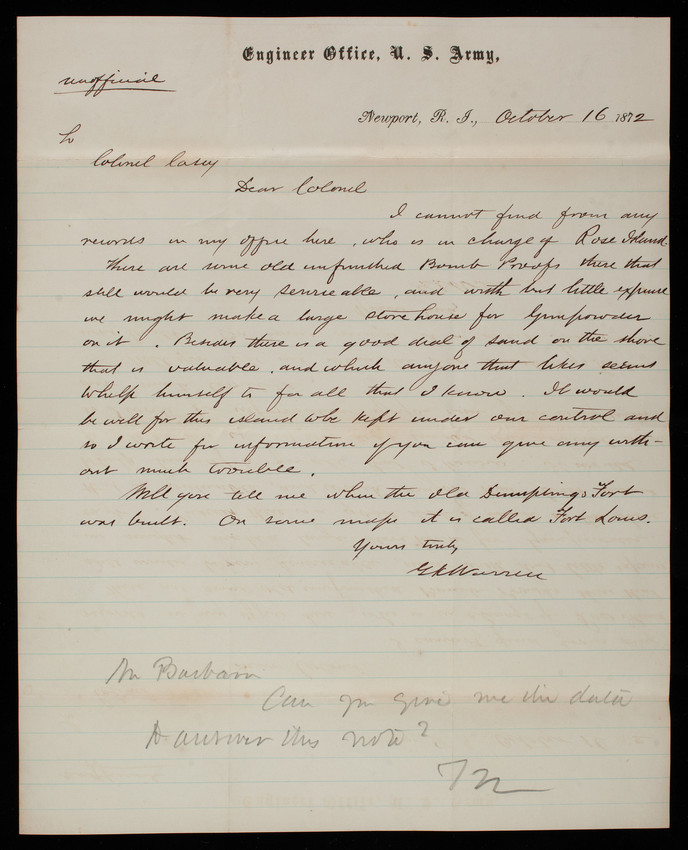 Engineer Office, U. S. Army,
unofficial
Newport, R. I., October 16 1872
To
Colonel Casey
Dear Colonel
I cannot find from any
records in my office here, who is in charge of Rose Island.
There are some old unfinished Bomb Proofs there that
still would be very serviceable, and with but little expense
we might make a large store house for Gunpowder
on it. Besides there is a good deal of sand on the shore
that is valuable, and which anyone that likes seems
to help himself to for all that I know. It would
be well for this island to be kept under our control and
so I write for information if you can give any with-
out much trouble.
Will you tell me when the old Dumplings Fort
was built. On some maps it is called Fort Louis.
Yours truly
GKWarren
Mr Barbarin
Can you give me the data
to answer this note?